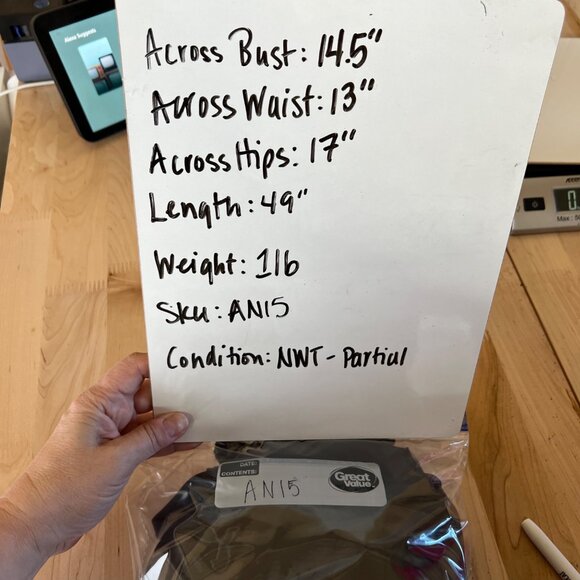 Alexa Suggests
Across Bust: 14.5"
Across Waist: 13"
Across Hips: 17"
Length: 49"
Weight: 1lb
Sku: AN15
Condition: NWT - Partial
DATE:
CONTENTS:
AN15
Great Value
Max.: